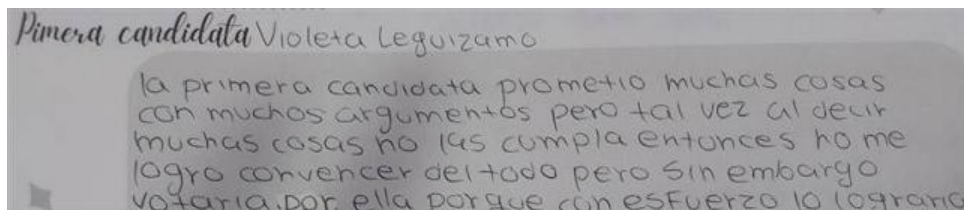 Pimera candidata Violeta Leguizamo
la primera candidata prometio muchas cosas
con muchos argumentos pero tal vez al decir
muchas cosas no las cumpla entonces no me
logro convencer del todo pero sin embargo
votaria por ella porque con esfuerzo lo lograria